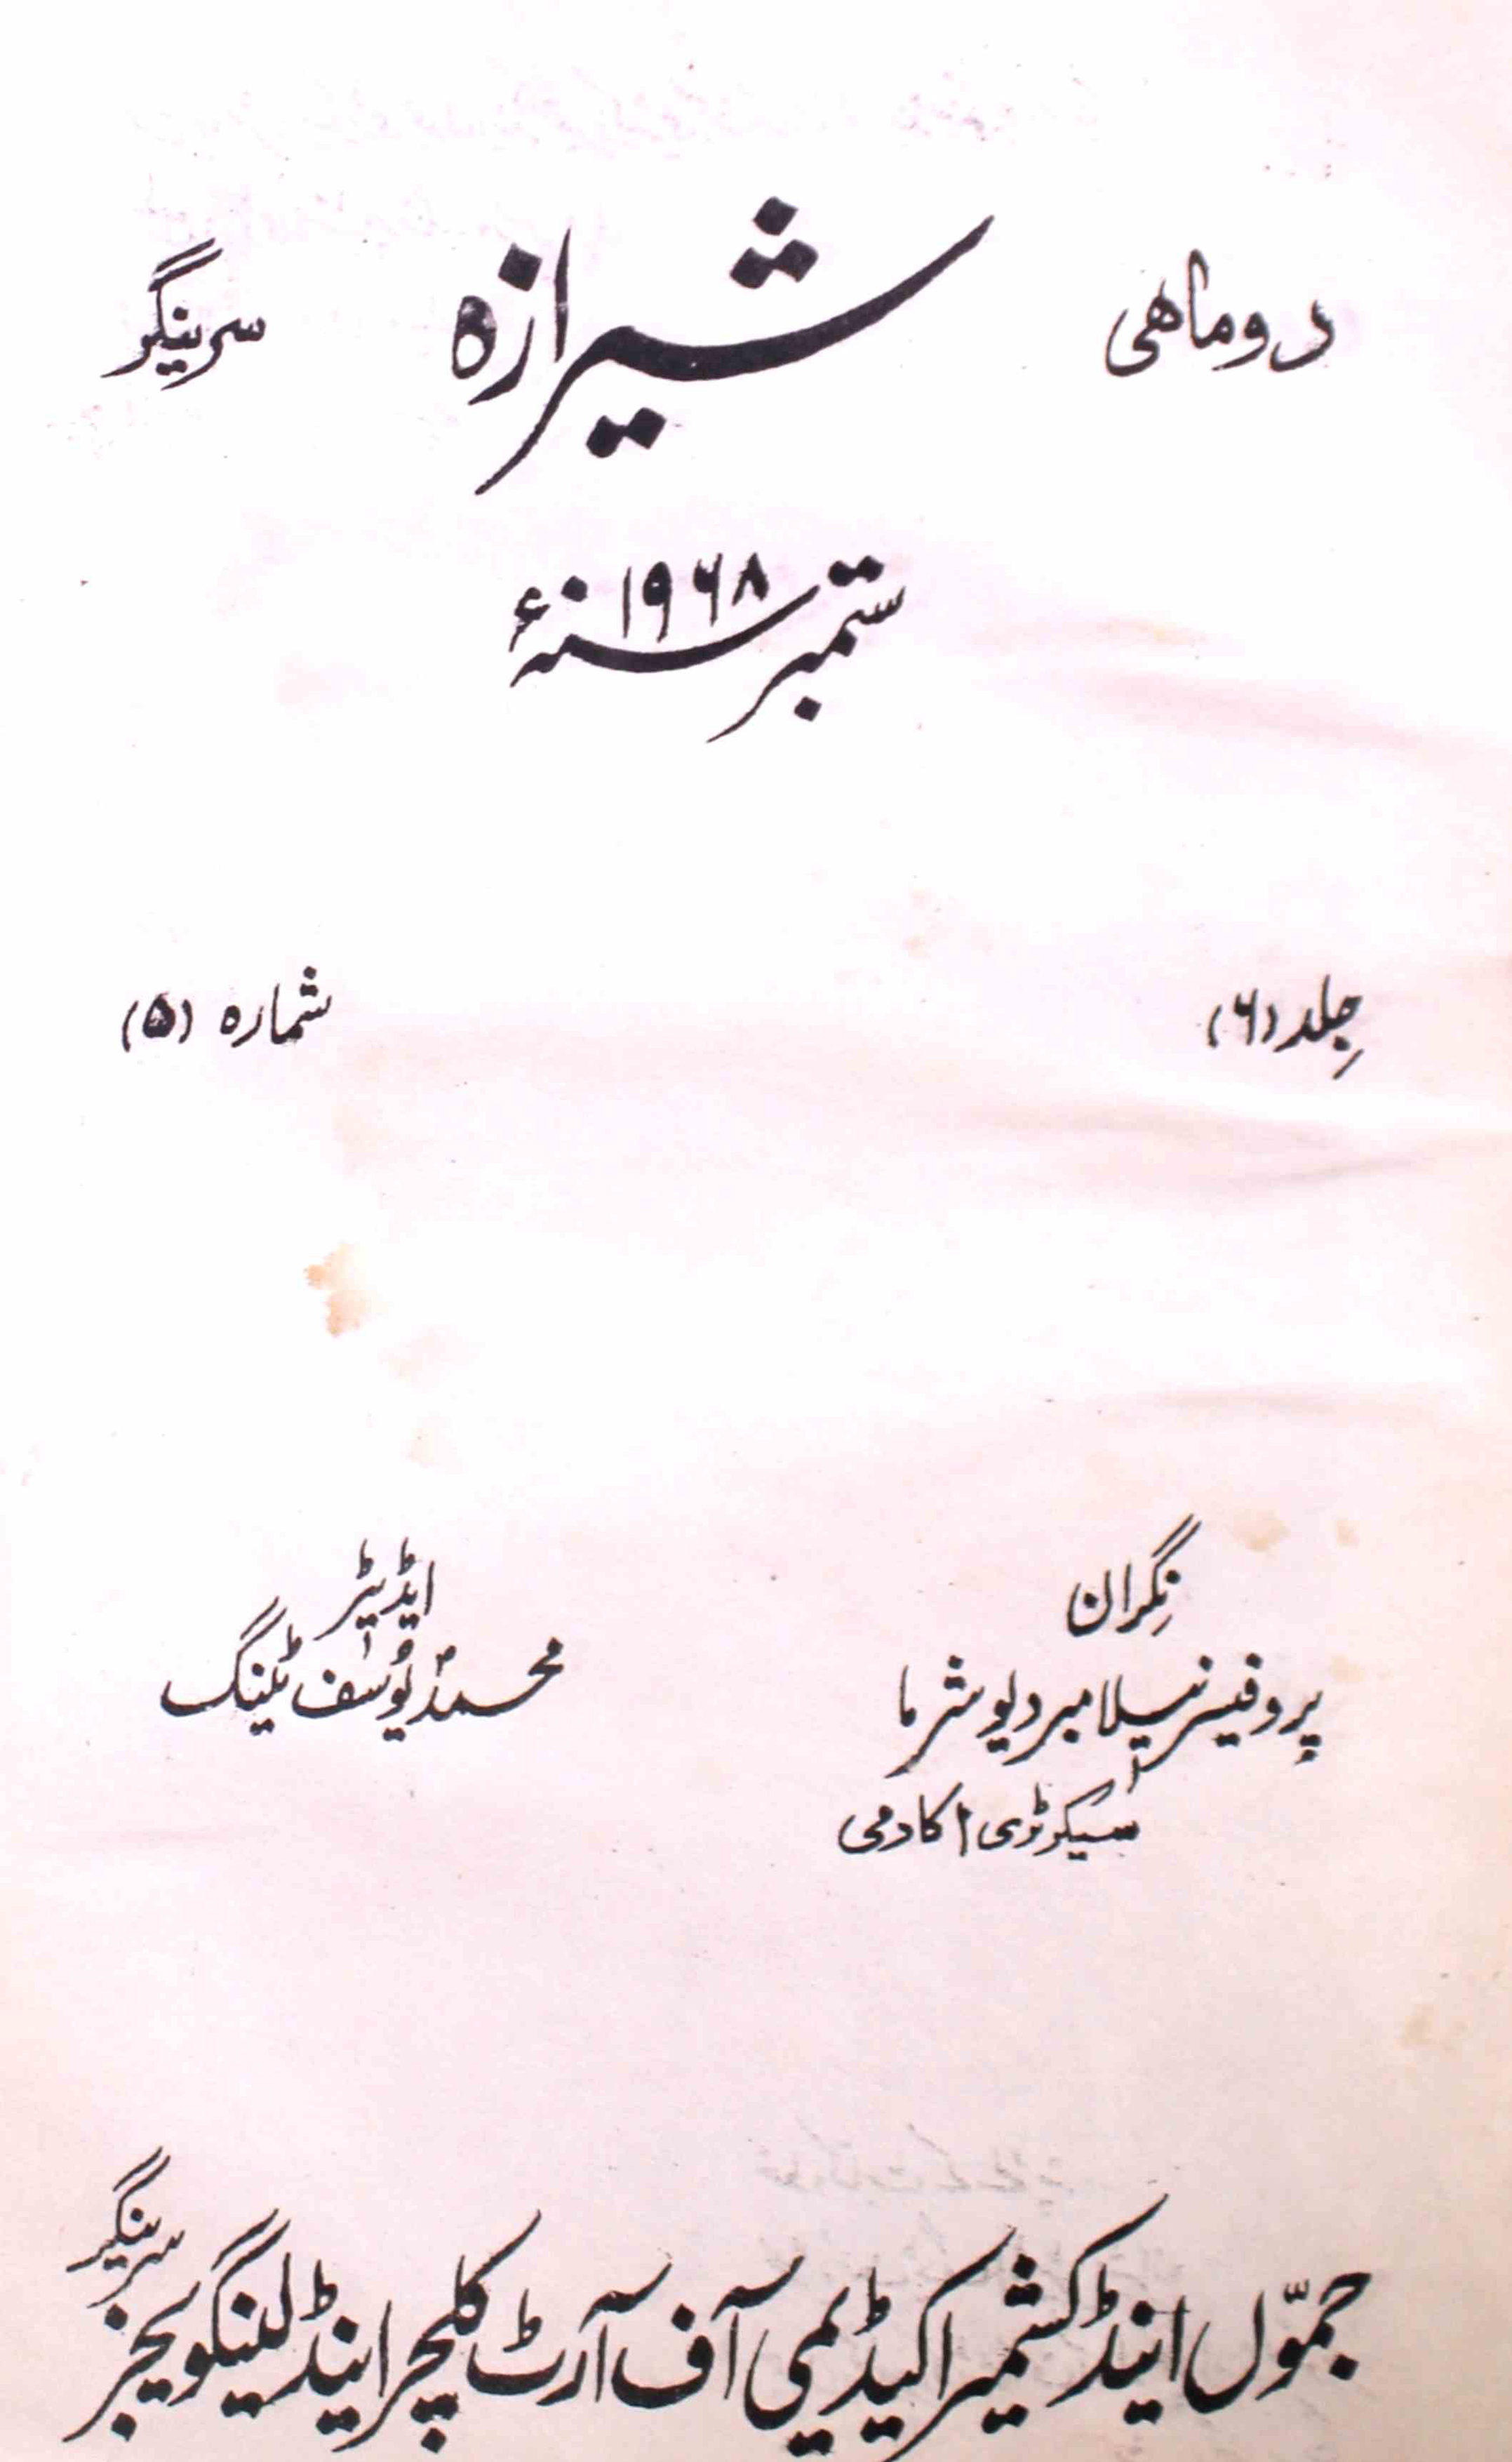 دوماهی شیرازہ سرینگر
ستمبر سنہ ۱۹۶۸ء
جِلد (۶) شمارہ (۵)
نِگران
پروفیسر نیلامبر دیو شرما
سیکرٹری اکادمی
ایڈیٹر
محمد یُوسف ٹینگ
جمّوں اینڈ کشمیر اکیڈیمی آف آرٹ کلچر اینڈ لینگویجز سرینگر